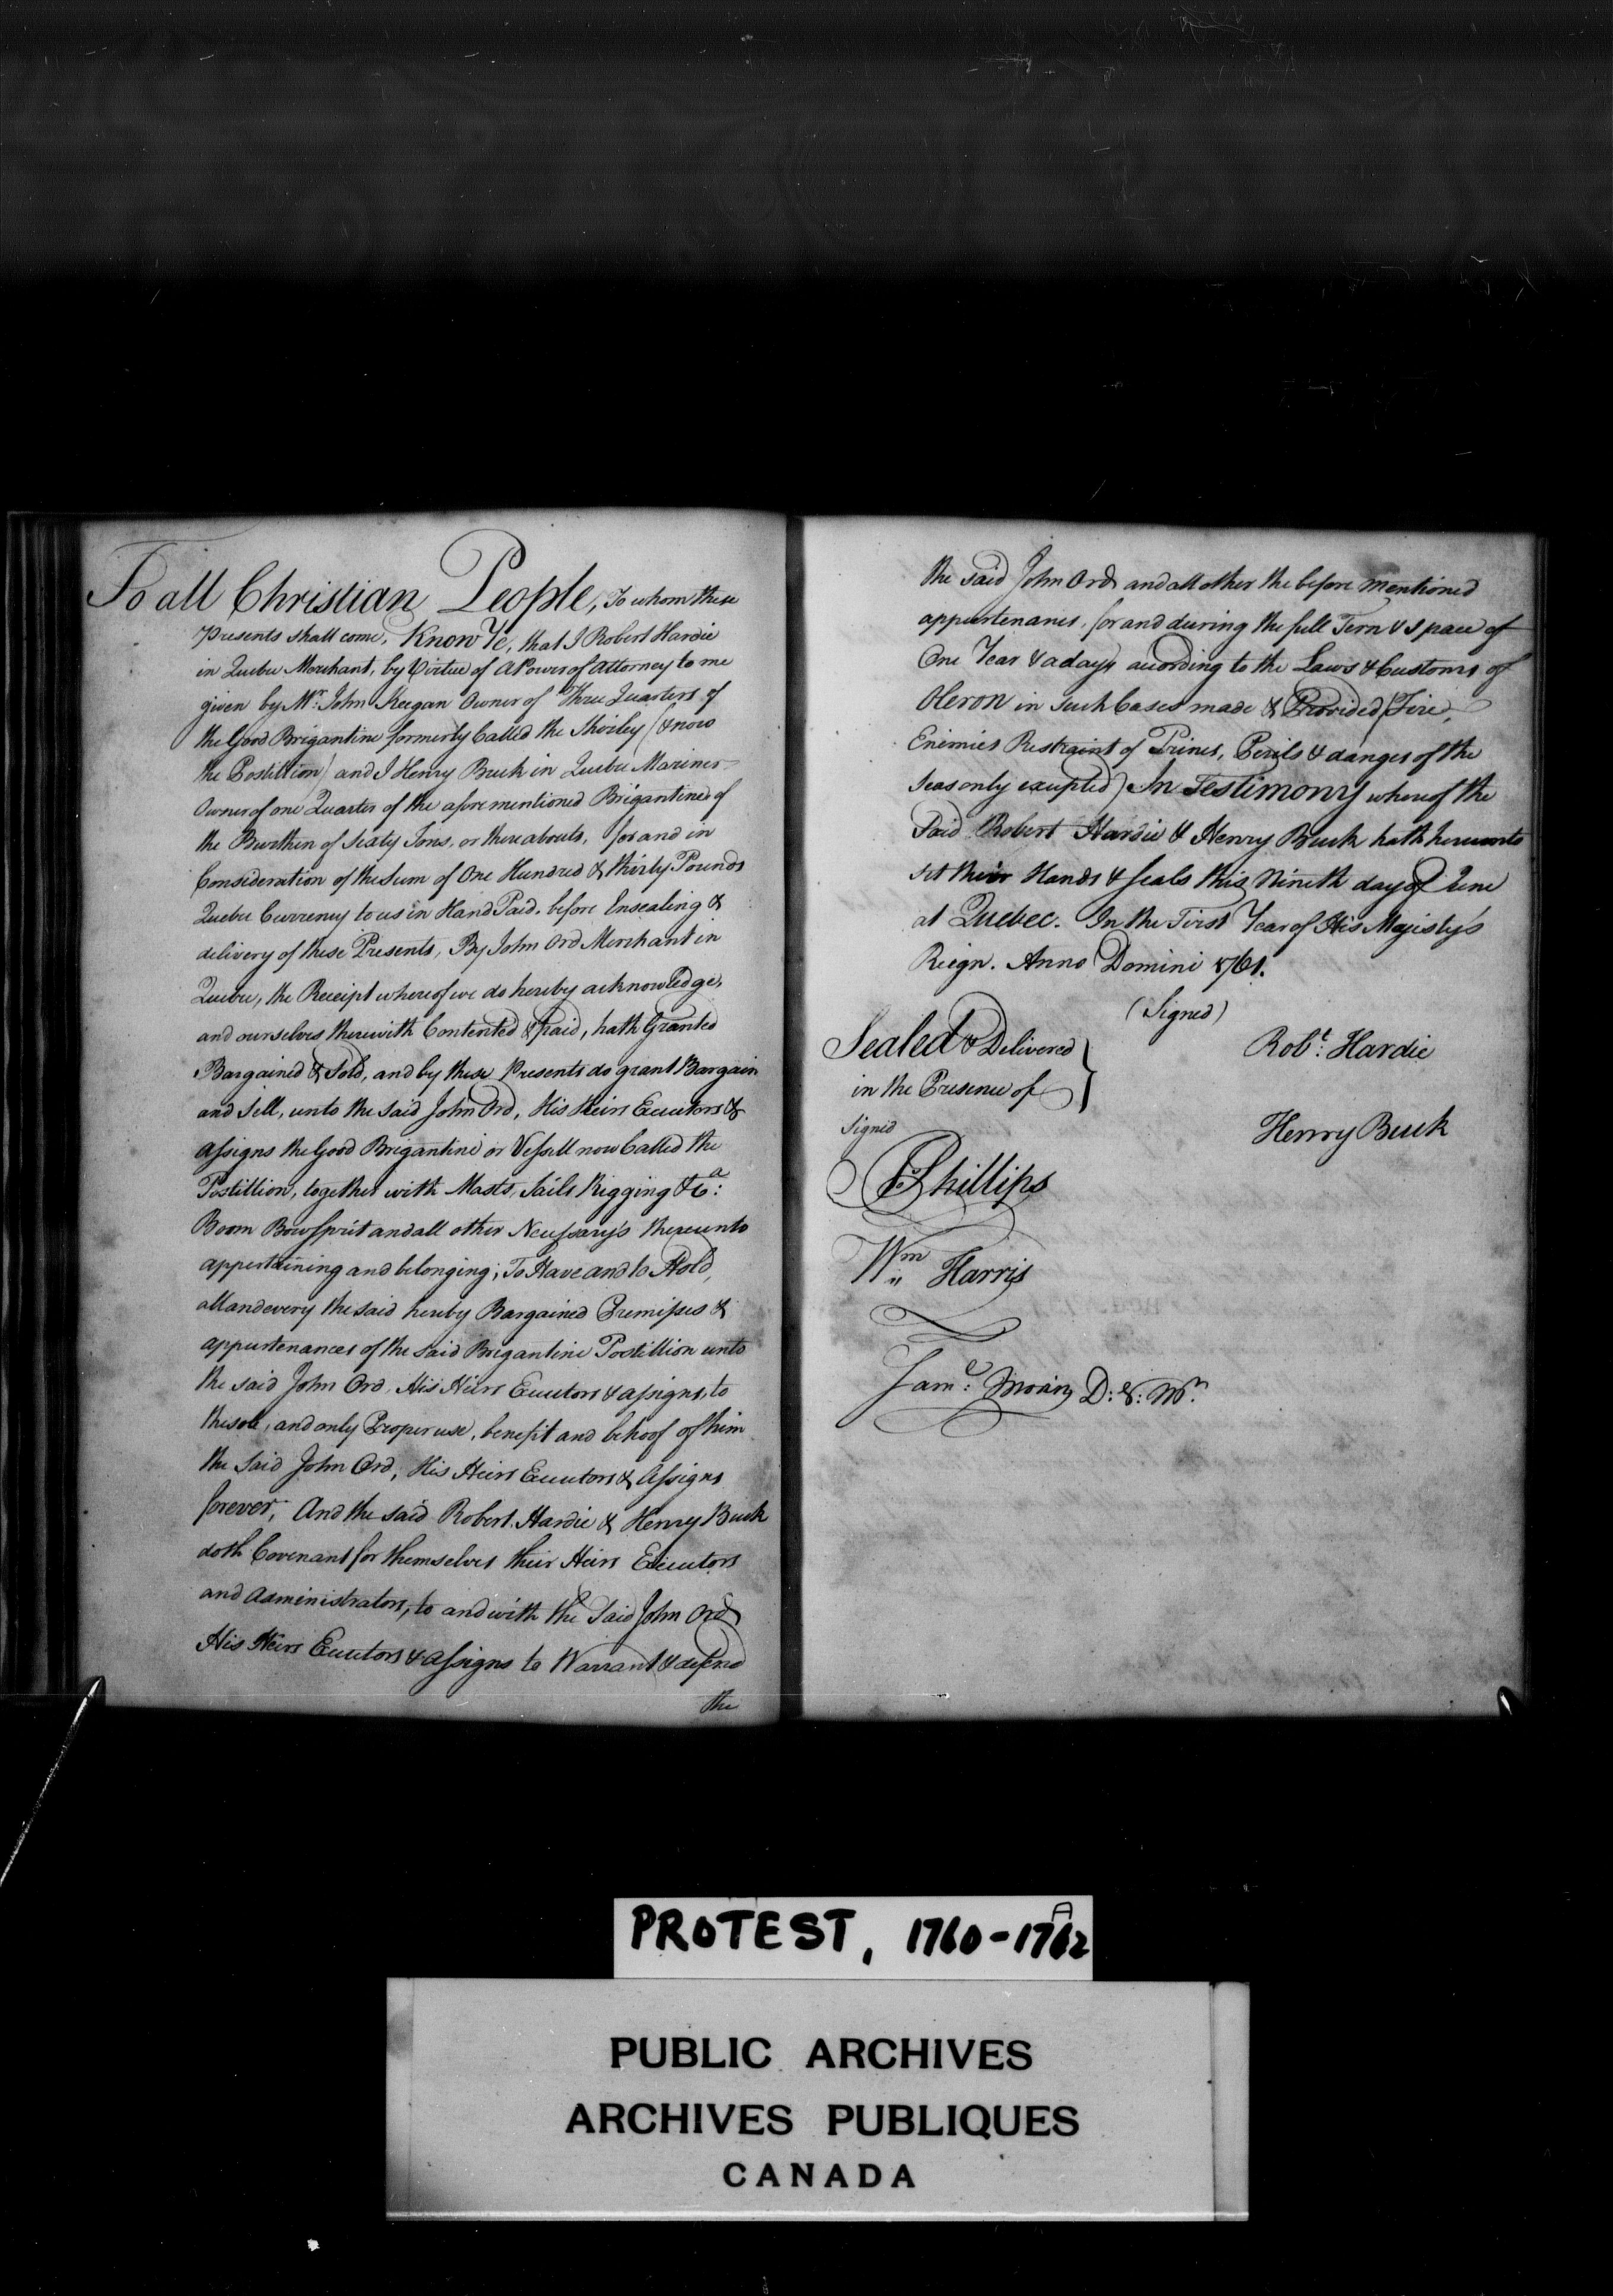 To all Christian People, To whom these
Presents shall come, Know Ye, that I Robert Hardie
in Quebec Merchant, by Virtue of A Power of Attorney to me
given by Mr: John Keegan Owner of Three Quarters of
the Good Brigantine formerly Called the Shirley (& now
the Postillion) and I Henry Buck in Quebec Mariner
Owner of one Quarter of the aforementioned Brigantine of
the Burthen of Sixty Tons, or thereabouts, for and in
Consideration of the Sum of One Hundred & thirty Pounds
Quebec Currency to us in Hand Paid, before Ensealing &
delivery of these Presents, By John Ord Merchant in
Quebec, the Receipt whereof we do hereby acknowledge,
and ourselves therewith Contented & paid, hath Granted
Bargained & Sold, and by these Presents do grant Bargain
and Sell, unto the said John Ord, His Heirs Executors &
Assigns the Good Brigantine or Vessell now Called the
Postillion, together with Masts, Sails Rigging &Ca:
Boom Bowsprit and all other Necessary's thereunto
appertaining and belonging; To Have and to Hold,
all and every the said hereby Bargained Premisses &
appurtenances of the said Brigantine Postillion unto
the said John Ord, His Heirs Executors & assigns, to
the sole, and only Proper use, benefit and behoof of him
the Said John Ord, His Heirs Executors & Assigns
forever; And the said Robert Hardie & Henry Buck
doth Covenant for themselves their Heirs Executors
and Administrators, to and with the Said John Ord
His Heirs Executors & Assigns to Warrant & defend
the
the said John Ord and all other the before mentioned
appurtenances, for and during the full Term & Space of
One Year & a day, according to the Laws & Customs of
Oleron in such Cases made & Provided (Fire,
Enimies Restraint of Princes, Perils & danges of the
Seas only excepted) In Testimony whereof the
Said Robert Hardie & Henry Buck hath hereunto
set their Hands & Seals this Nineth day of June
at Quebec. In the First Year of His Majesty's
Reign. Anno Domini 1761.
(Signed)
Sealed & Delivered
in the Presence of
Robt: Hardie
Signed
Henry Buck
Phillips
Wm Harris
D: &: Mr.
PROTEST, 1760-1762
PUBLIC ARCHIVES
ARCHIVES PUBLIQUES
CANADA